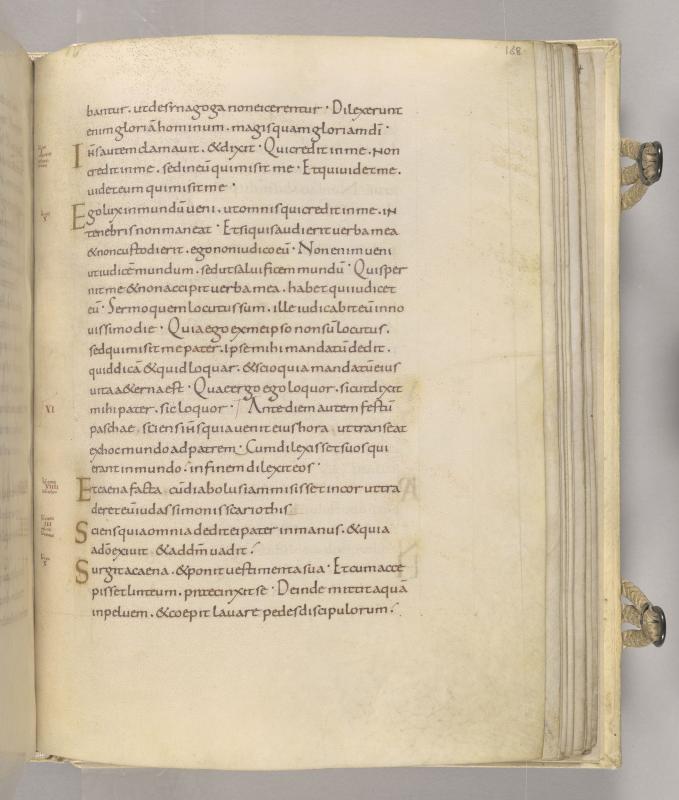 168
bantur · ut desynagoga non eicerentur · Dilexerunt
enim gloriā hominum · magis quam gloriam dī ·
Ihs autem clamauit · & dixit · Qui credit in me · Non
credit in me · sed in eū qui misit me · Et qui uidet me ·
uidet eum qui misit me ·
Ego lux in mundū ueni · ut omnis qui credit in me · in
tenebris non maneat · Et si quis audierit uerba mea
& non custodierit · ego non iudico eū · Non enim ueni
ut iudicē mundum · sed ut saluificem mundū · Qui sper
nit me & non accipit uerba mea · habet qui iudicet
eū · Sermo quem locutus sum · ille iudicabit eū in no
uissimo die · Quia ego ex me ipso non sū locutus ·
sed qui misit me pater · ipse mihi mandatū dedit ·
quid dicā & quid loquar · & scio quia mandatū eius
uita aeterna est · Quae ergo ego loquor · sicut dixit
mihi pater · sic loquor · Ante diem autem festū
paschae sciens ihs quia uenit eius hora ut transeat
ex hoc mundo ad patrem · Cum dilexisset suos qui
erant in mundo · in finem dilexit eos ·
VI
Et caena facta cū diabolus iam misisset in cor ut tra
deret eū iudas simonis scariothis
Sciens quia omnia dedit ei pater in manus · & quia
a dō exiuit & ad dm̄ uadit ·
Surgit a caena · & ponit uestimenta sua · Et cum acce
pisset linteum · praecinxit se · Deinde mittit aquā
in peluem · & coepit lauare pedes discipulorum ·